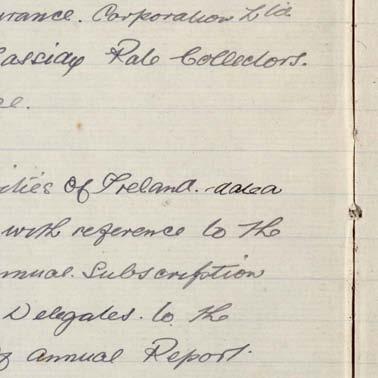 urance. Corporation Ltd
Cassidy Rate Collectors.
ce.
ities of Ireland. dated
with reference to the
nnual. Subscription
Delegates. to the
annual Report.